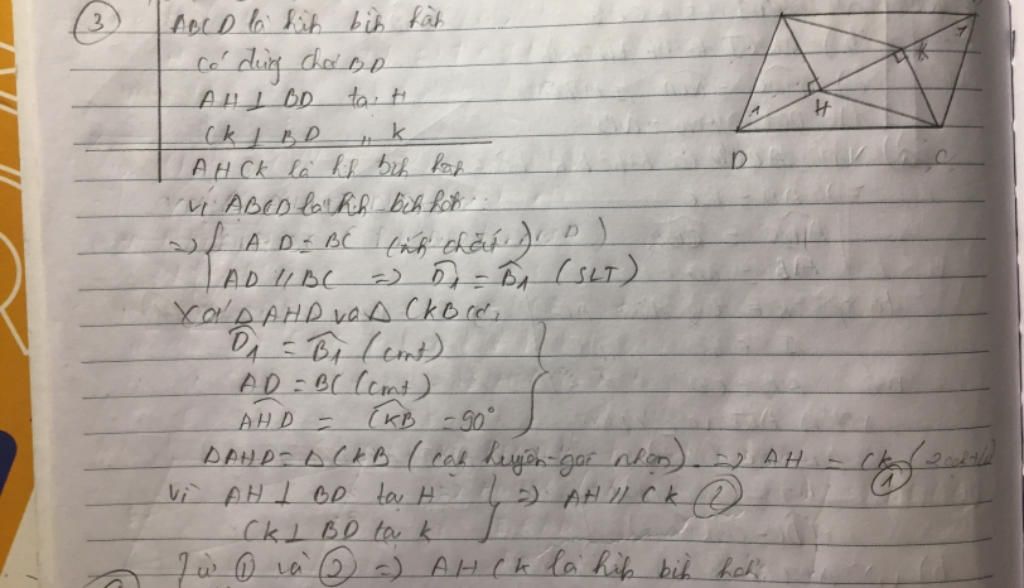 3
ABCD là hình bình hành
Có đường chéo BD
AH ⊥ BD tại H
CK ⊥ BD " K
AHCK là hình bình hành
Vì ABCD là hình bình hành
=> { AD = BC (tính chất)
AD // BC => D̂1 = B̂1 (SLT)
Xét Δ AHD và Δ CKB có:
D̂1 = B̂1 (cmt)
AD = BC (cmt)
AHD = CKB = 90°
ΔAHD = ΔCKB (cạnh huyền - góc nhọn) => AH = CK (2 cạnh t/ứ) ①
Vì AH ⊥ BD tại H } => AH // CK ②
CK ⊥ BD tại K
Từ ① và ② => AHCK là hình bình hành
1
K
1
H
D
C